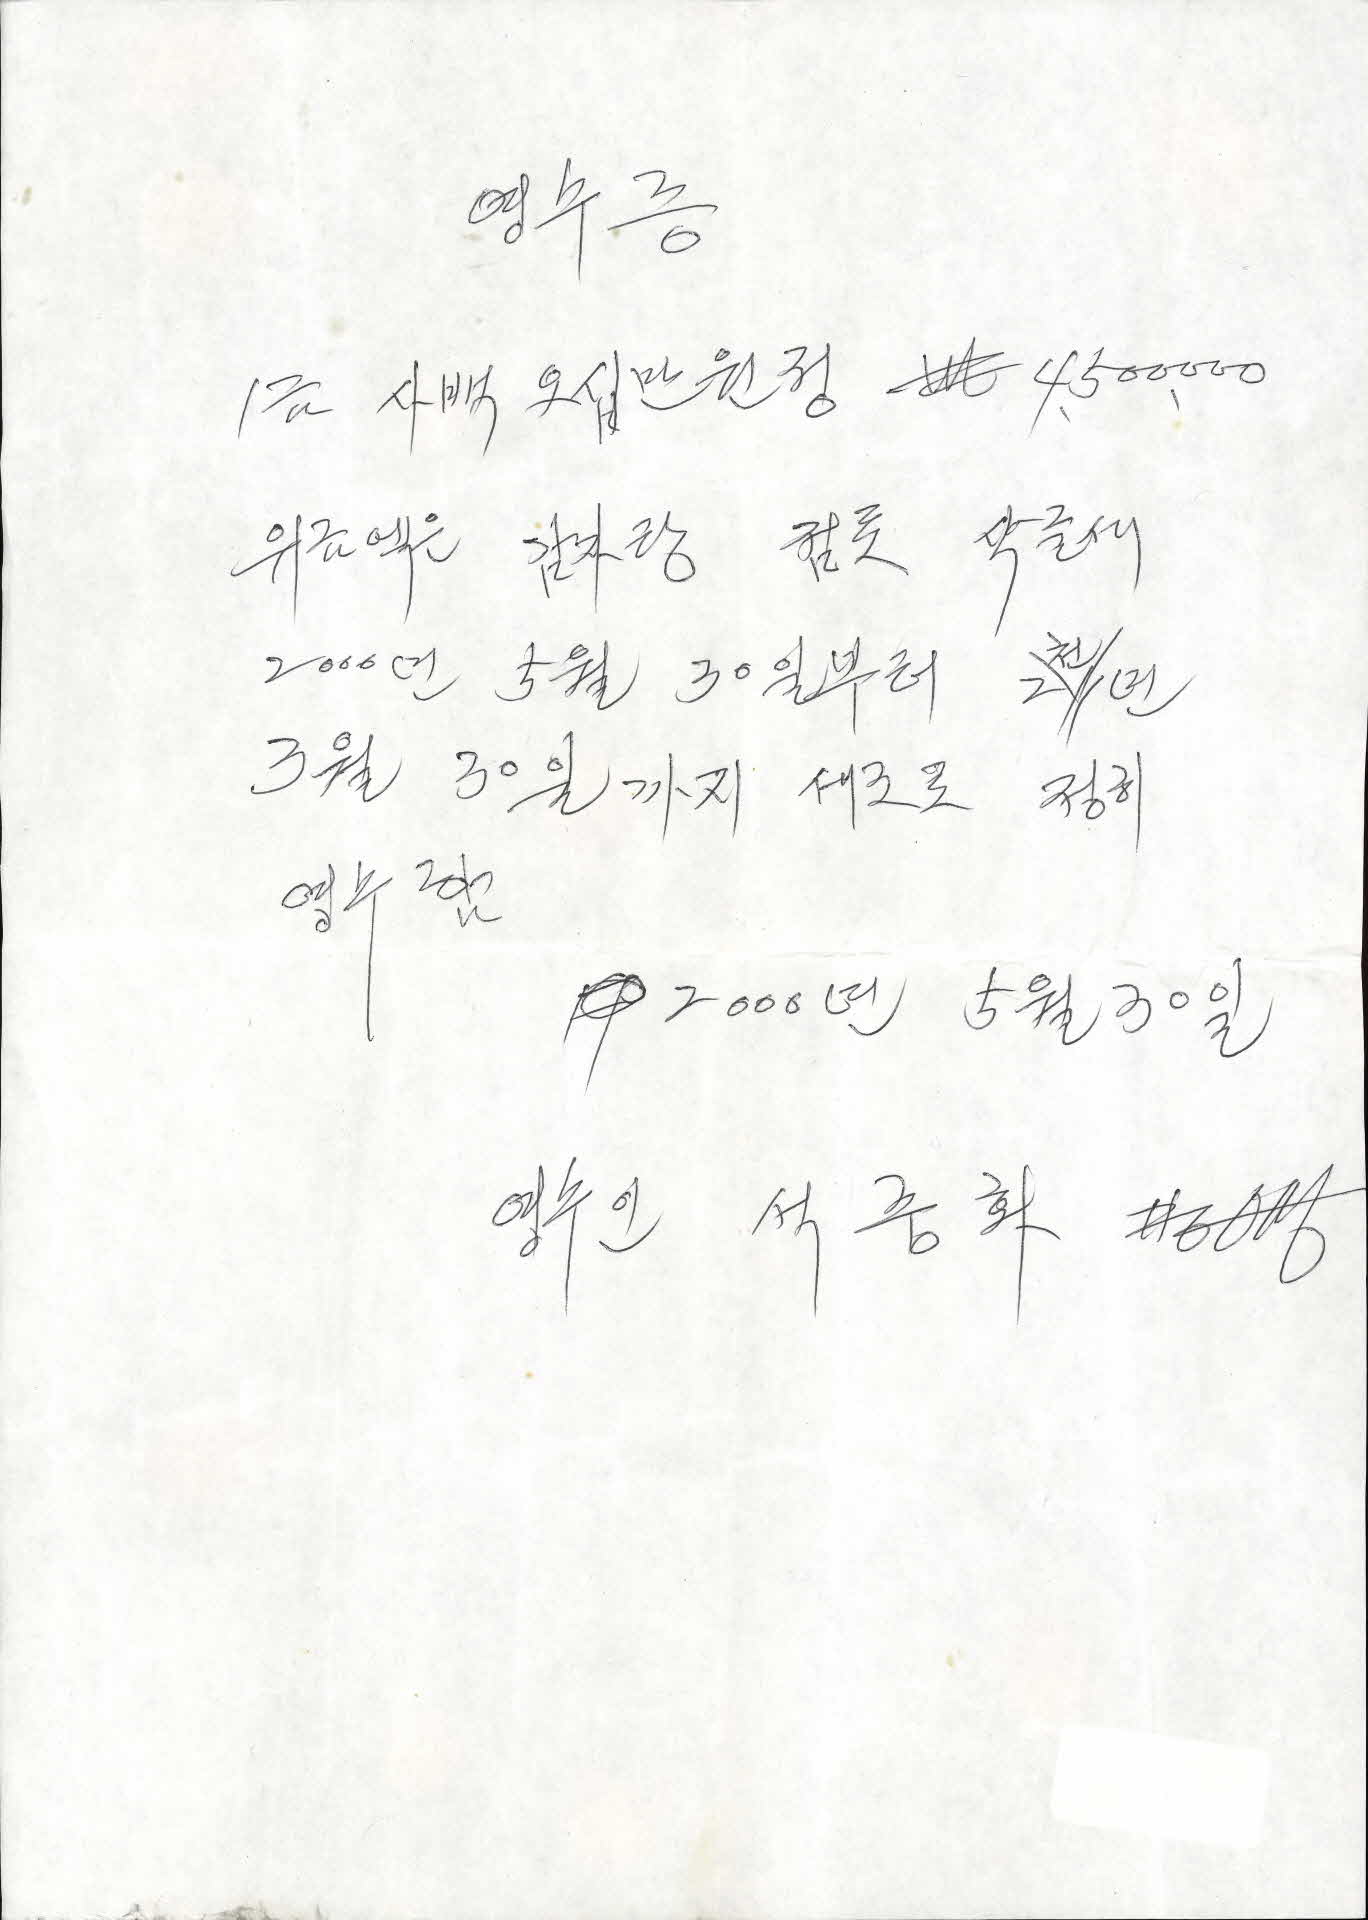 영수증
1금 사백 오십만원정 ₩ 4,500,000
위금액은 감자탕 점포 삭글세
2000년 5월 30일부터 2천1년
3월 30일까지 세조로 정히
영수함
2000년 5월 30일
영수인 석중화